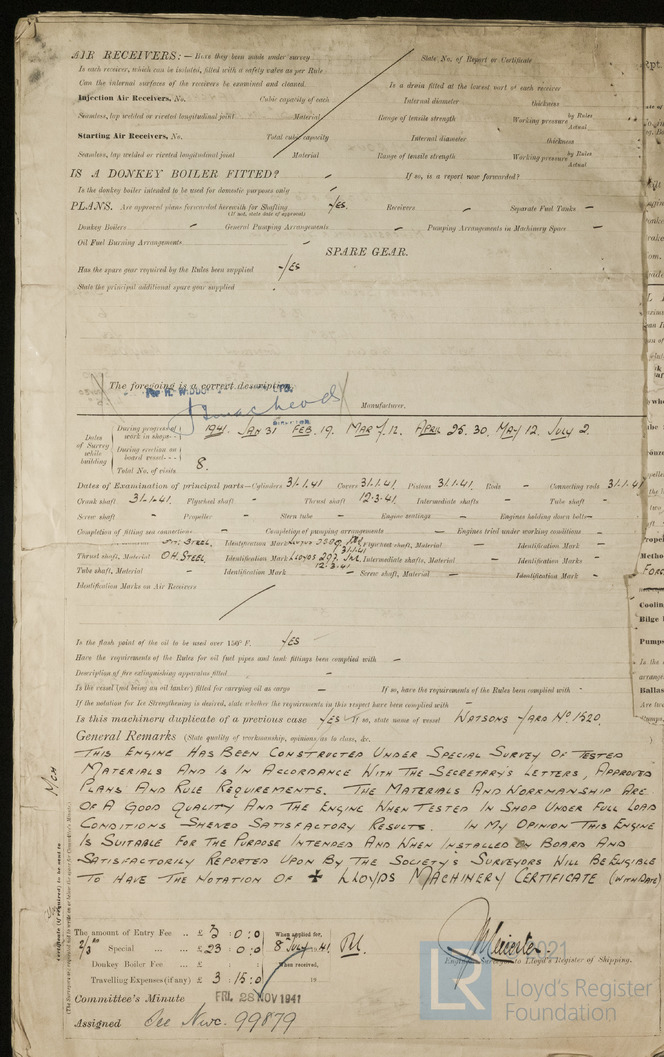 AIR RECEIVERS:— Have they been made under survey State No. of Report or Certificate
Is each receiver, which can be isolated, fitted with a safety valve as per Rule
Can the internal surfaces of the receivers be examined and cleaned Is a drain fitted at the lowest part of each receiver
Injection Air Receivers, No. Cubic capacity of each Internal diameter thickness
Seamless, lap welded or riveted longitudinal joint Material Range of tensile strength Working pressure by Rules Actual
Starting Air Receivers, No. Total cubic capacity Internal diameter thickness
Seamless, lap welded or riveted longitudinal joint Material Range of tensile strength Working pressure by Rules Actual
IS A DONKEY BOILER FITTED? - If so, is a report now forwarded? -
Is the donkey boiler intended to be used for domestic purposes only -
PLANS. Are approved plans forwarded herewith for Shafting YES. Receivers - Separate Fuel Tanks -
(If not, state date of approval)
Donkey Boilers - General Pumping Arrangements - Pumping Arrangements in Machinery Space -
Oil Fuel Burning Arrangements -
SPARE GEAR.
Has the spare gear required by the Rules been supplied YES
State the principal additional spare gear supplied -
The foregoing is a correct description,
Manufacturer.
Dates of Survey while building
During progress of work in shops - - 1941. JAN 31 FEB. 19. MAR 7. 12. APRIL 25. 30. MAY 12. JULY 2.
During erection on board vessel - - -
Total No. of visits 8.
Dates of Examination of principal parts—Cylinders 31.1.41 Covers 31.1.41. Pistons 31.1.41. Rods - Connecting rods 31.1.41
Crank shaft 31.1.41. Flywheel shaft - Thrust shaft 12.3.41. Intermediate shafts - Tube shaft -
Screw shaft - Propeller - Stern tube - Engine seatings - Engines holding down bolts -
Completion of fitting sea connections - Completion of pumping arrangements - Engines tried under working conditions -
STEEL. Identification Mark LLOYDS 31.1.41 Flywheel shaft, Material - Identification Mark -
Thrust shaft, Material O.H. STEEL. Identification Mark LLOYDS 297. 12.3.41 Intermediate shafts, Material - Identification Marks -
Tube shaft, Material - Identification Mark Screw shaft, Material - Identification Mark -
Identification Marks on Air Receivers
Is the flash point of the oil to be used over 150° F. YES
Have the requirements of the Rules for oil fuel pipes and tank fittings been complied with -
Description of fire extinguishing apparatus fitted -
Is the vessel (not being an oil tanker) fitted for carrying oil as cargo - If so, have the requirements of the Rules been complied with -
If the notation for Ice Strengthening is desired, state whether the requirements in this respect have been complied with -
Is this machinery duplicate of a previous case YES If so, state name of vessel WATSONS YARD No. 1520.
General Remarks (State quality of workmanship, opinions as to class, &c.
THIS ENGINE HAS BEEN CONSTRUCTED UNDER SPECIAL SURVEY OF TESTED
MATERIALS AND IS IN ACCORDANCE WITH THE SECRETARY'S LETTERS, APPROVED
PLANS AND RULE REQUIREMENTS. THE MATERIALS AND WORKMANSHIP ARE
OF A GOOD QUALITY AND THE ENGINE WHEN TESTED IN SHOP UNDER FULL LOAD
CONDITIONS SHEWED SATISFACTORY RESULTS. IN MY OPINION THIS ENGINE
IS SUITABLE FOR THE PURPOSE INTENDED AND WHEN INSTALLED ON BOARD AND
SATISFACTORILY REPORTED UPON BY THE SOCIETY'S SURVEYORS WILL BE ELIGIBLE
TO HAVE THE NOTATION OF ✠ LLOYDS MACHINERY CERTIFICATE (WITH DATE)
The amount of Entry Fee .. £ 3 : 0 : 0 When applied for,
2/3rds Special ... ... £ 23 : 0 : 0 8 JULY 1941.
Donkey Boiler Fee ... £ : : When received,
Travelling Expenses (if any) £ 3 : 15 : 0 19
Engineer Surveyor to Lloyd's Register of Shipping.
Committee's Minute FRI. 28 NOV 1941
Assigned See Nwc. 99879
2021
LR
Lloyd's Register
Foundation